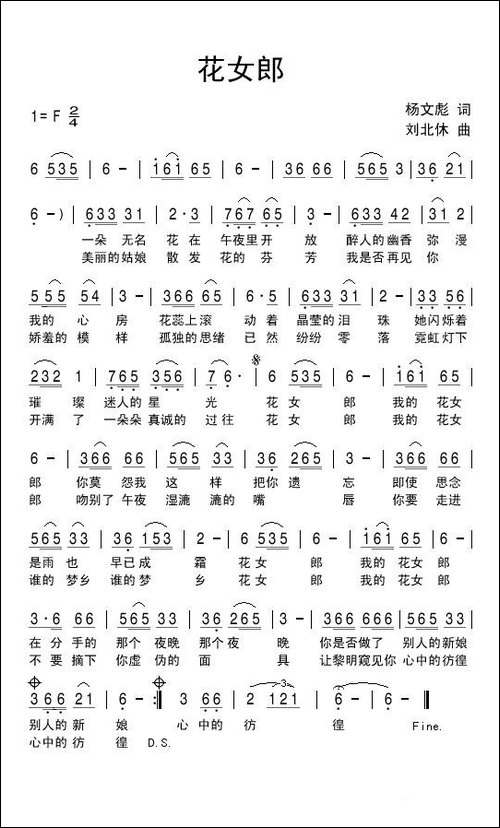 花女郎
1=F 2/4
杨文彪 词
刘北休 曲
6 535 | 6 - | 161 65 | 6 - | 36 66 | 565 3 | 36 21 |
6 - ) | 633 31 | 2·3 | 767 65 | 3 - | 633 42 | 31 2 |
一朵 无名 花在 午夜里开 放 醉人的幽香 弥漫
美丽的姑娘 散发 花的 芬 芳 我是否再见 你
555 54 | 3 - | 366 65 | 6·5 | 633 31 | 2 - | 33 56 |
我的 心 房 花蕊上滚 动着 晶莹的泪 珠 她闪烁着
娇羞的 模 样 孤独的思绪 已然 纷纷零 落 霓虹灯下
232 1 | 765 356 | 7 6· | 6 535 | 6 - | 161 65 |
璀 璨 迷人的星 光 花女 郎 我的 花女
开满 了 一朵朵真诚的 过往 花女 郎 我的 花女
6 - | 366 66 | 565 33 | 36 265 | 3 - | 366 65 |
郎 你莫 怨我 这 样 把你遗 忘 即使 思念
郎 吻别了午夜 湿漉 漉的 嘴 唇 你要 走进
565 33 | 36 153 | 2 - | 6 535 | 6 - | 161 65 | 6 - |
是雨 也 早已成 霜 花女 郎 我的 花女 郎
谁的 梦乡 谁的梦 乡 花女 郎 我的 花女 郎
3·6 66 | 565 33 | 36 265 | 3 - | 366 666 | 565 33 |
在 分手的 那个 夜晚 那个夜 晚 你是否做了 别人的新娘
不 要摘下 你虚 伪的 面 具 让黎明窥见你 心中的彷徨
366 21 | 6 - :| 766 56 | 2 121 | 6 - | 6 - ||
别人的新 娘 心 中的 彷 徨 Fine.
心中的彷 徨 D.S.